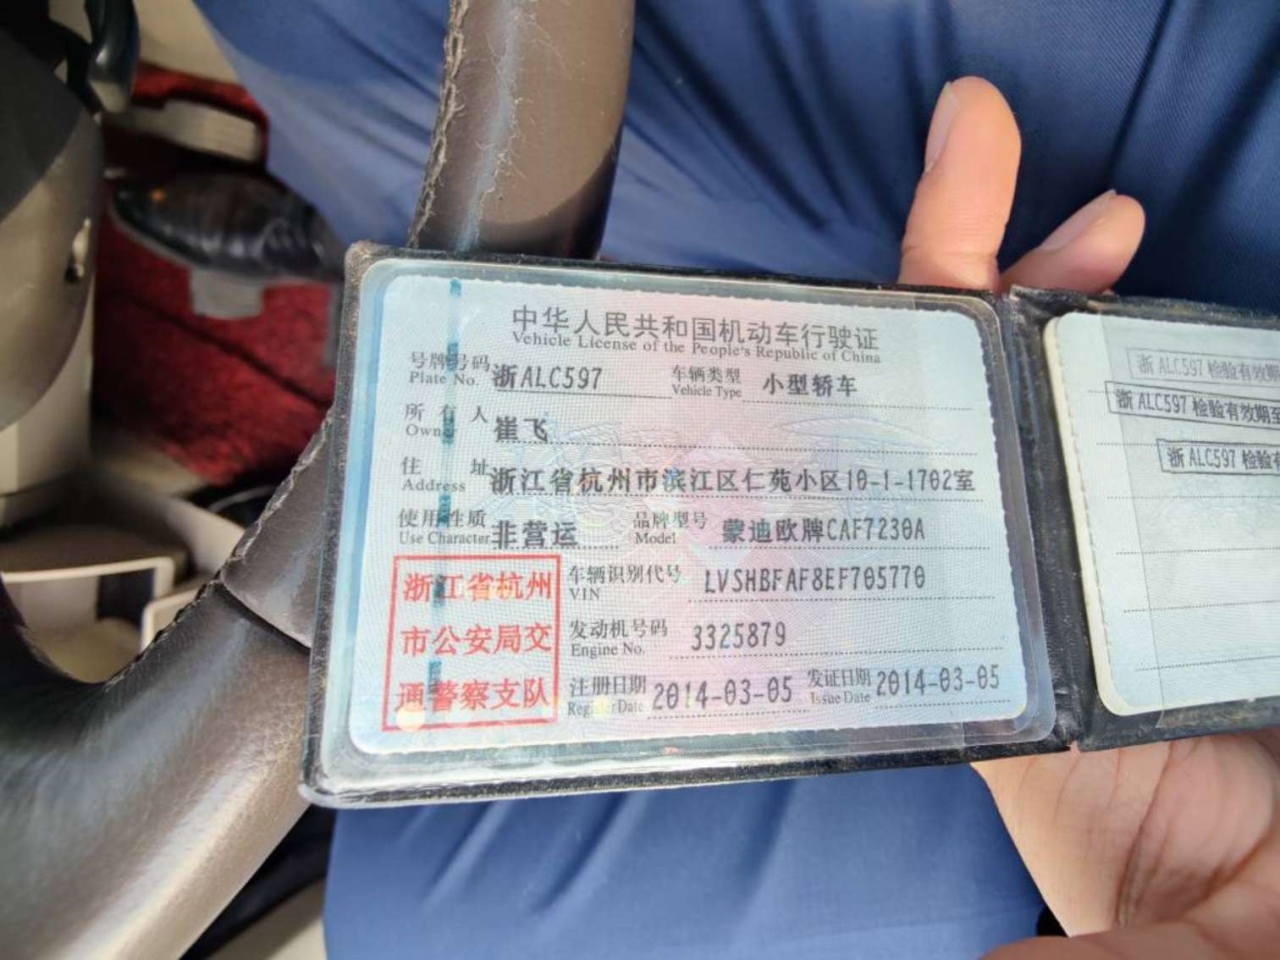 中华人民共和国机动车行驶证
Vehicle License of the People's Republic of China
号牌号码 浙ALC597 车辆类型 小型轿车
Plate No. Vehicle Type
所有人 崔飞
Owner
住址 浙江省杭州市滨江区仁苑小区10-1-1702室
Address
使用性质 非营运 品牌型号 蒙迪欧牌CAF7230A
Use Character Model
浙江省杭州
市公安局交
通警察支队
车辆识别代号 LVSHBFAF8EF705770
VIN
发动机号码 3325879
Engine No.
注册日期 2014-03-05 发证日期 2014-03-05
Register Date Issue Date
浙ALC597 检验有效期
浙ALC597 检验有效期至
浙ALC597 检验有